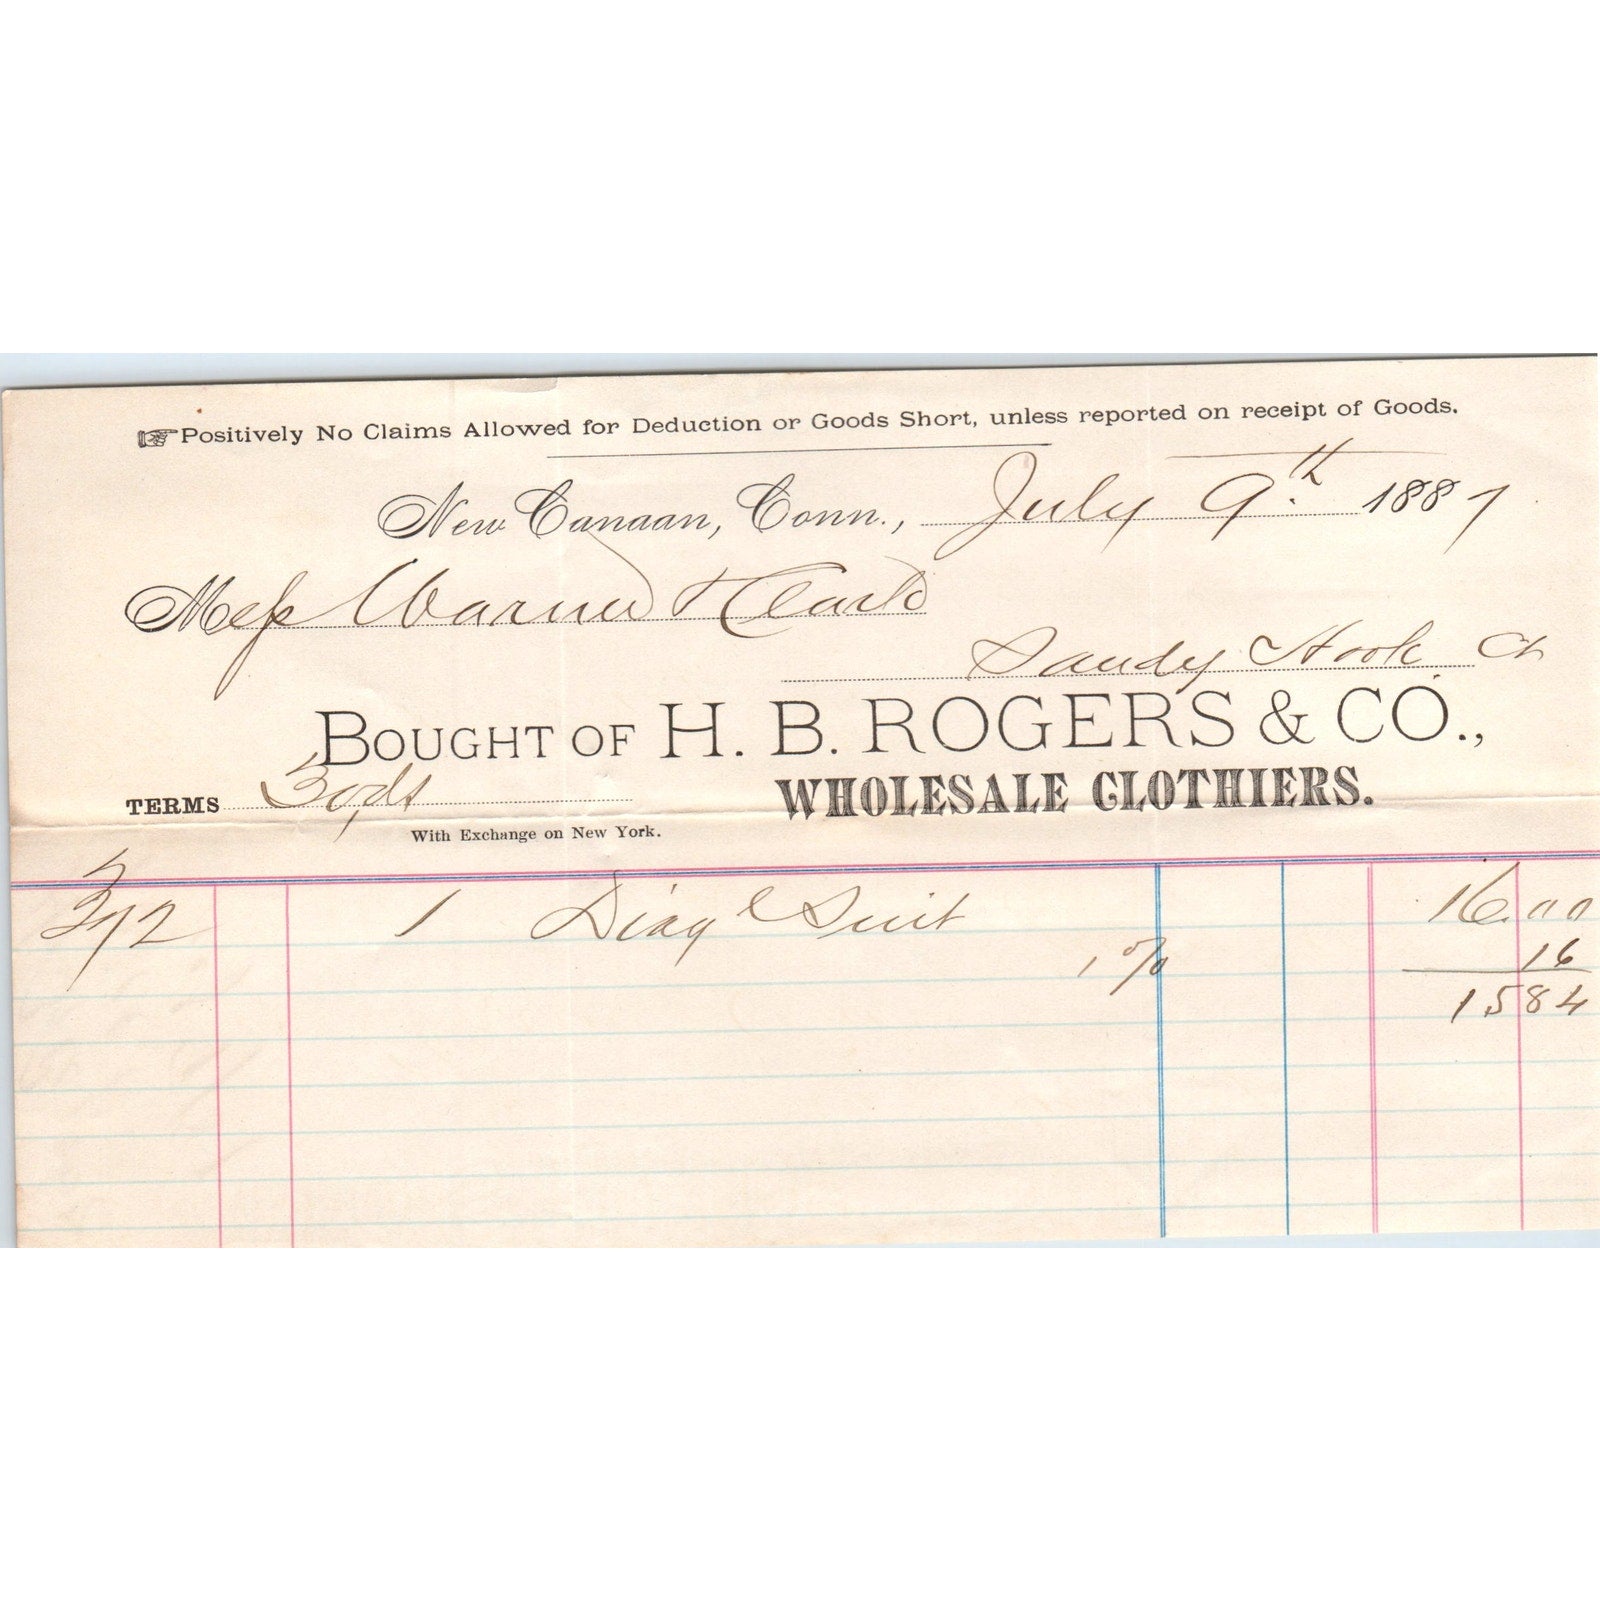 ☞Positively No Claims Allowed for Deduction or Goods Short, unless reported on receipt of Goods.
New Canaan, Conn., July 9th 1887
Mess Warner & Clark
Sandy Hook Ct
BOUGHT OF H. B. ROGERS & CO.,
WHOLESALE CLOTHIERS.
TERMS 30 ds
With Exchange on New York.
372 1 Diagl Suit 16.00
1 % 16
15 84